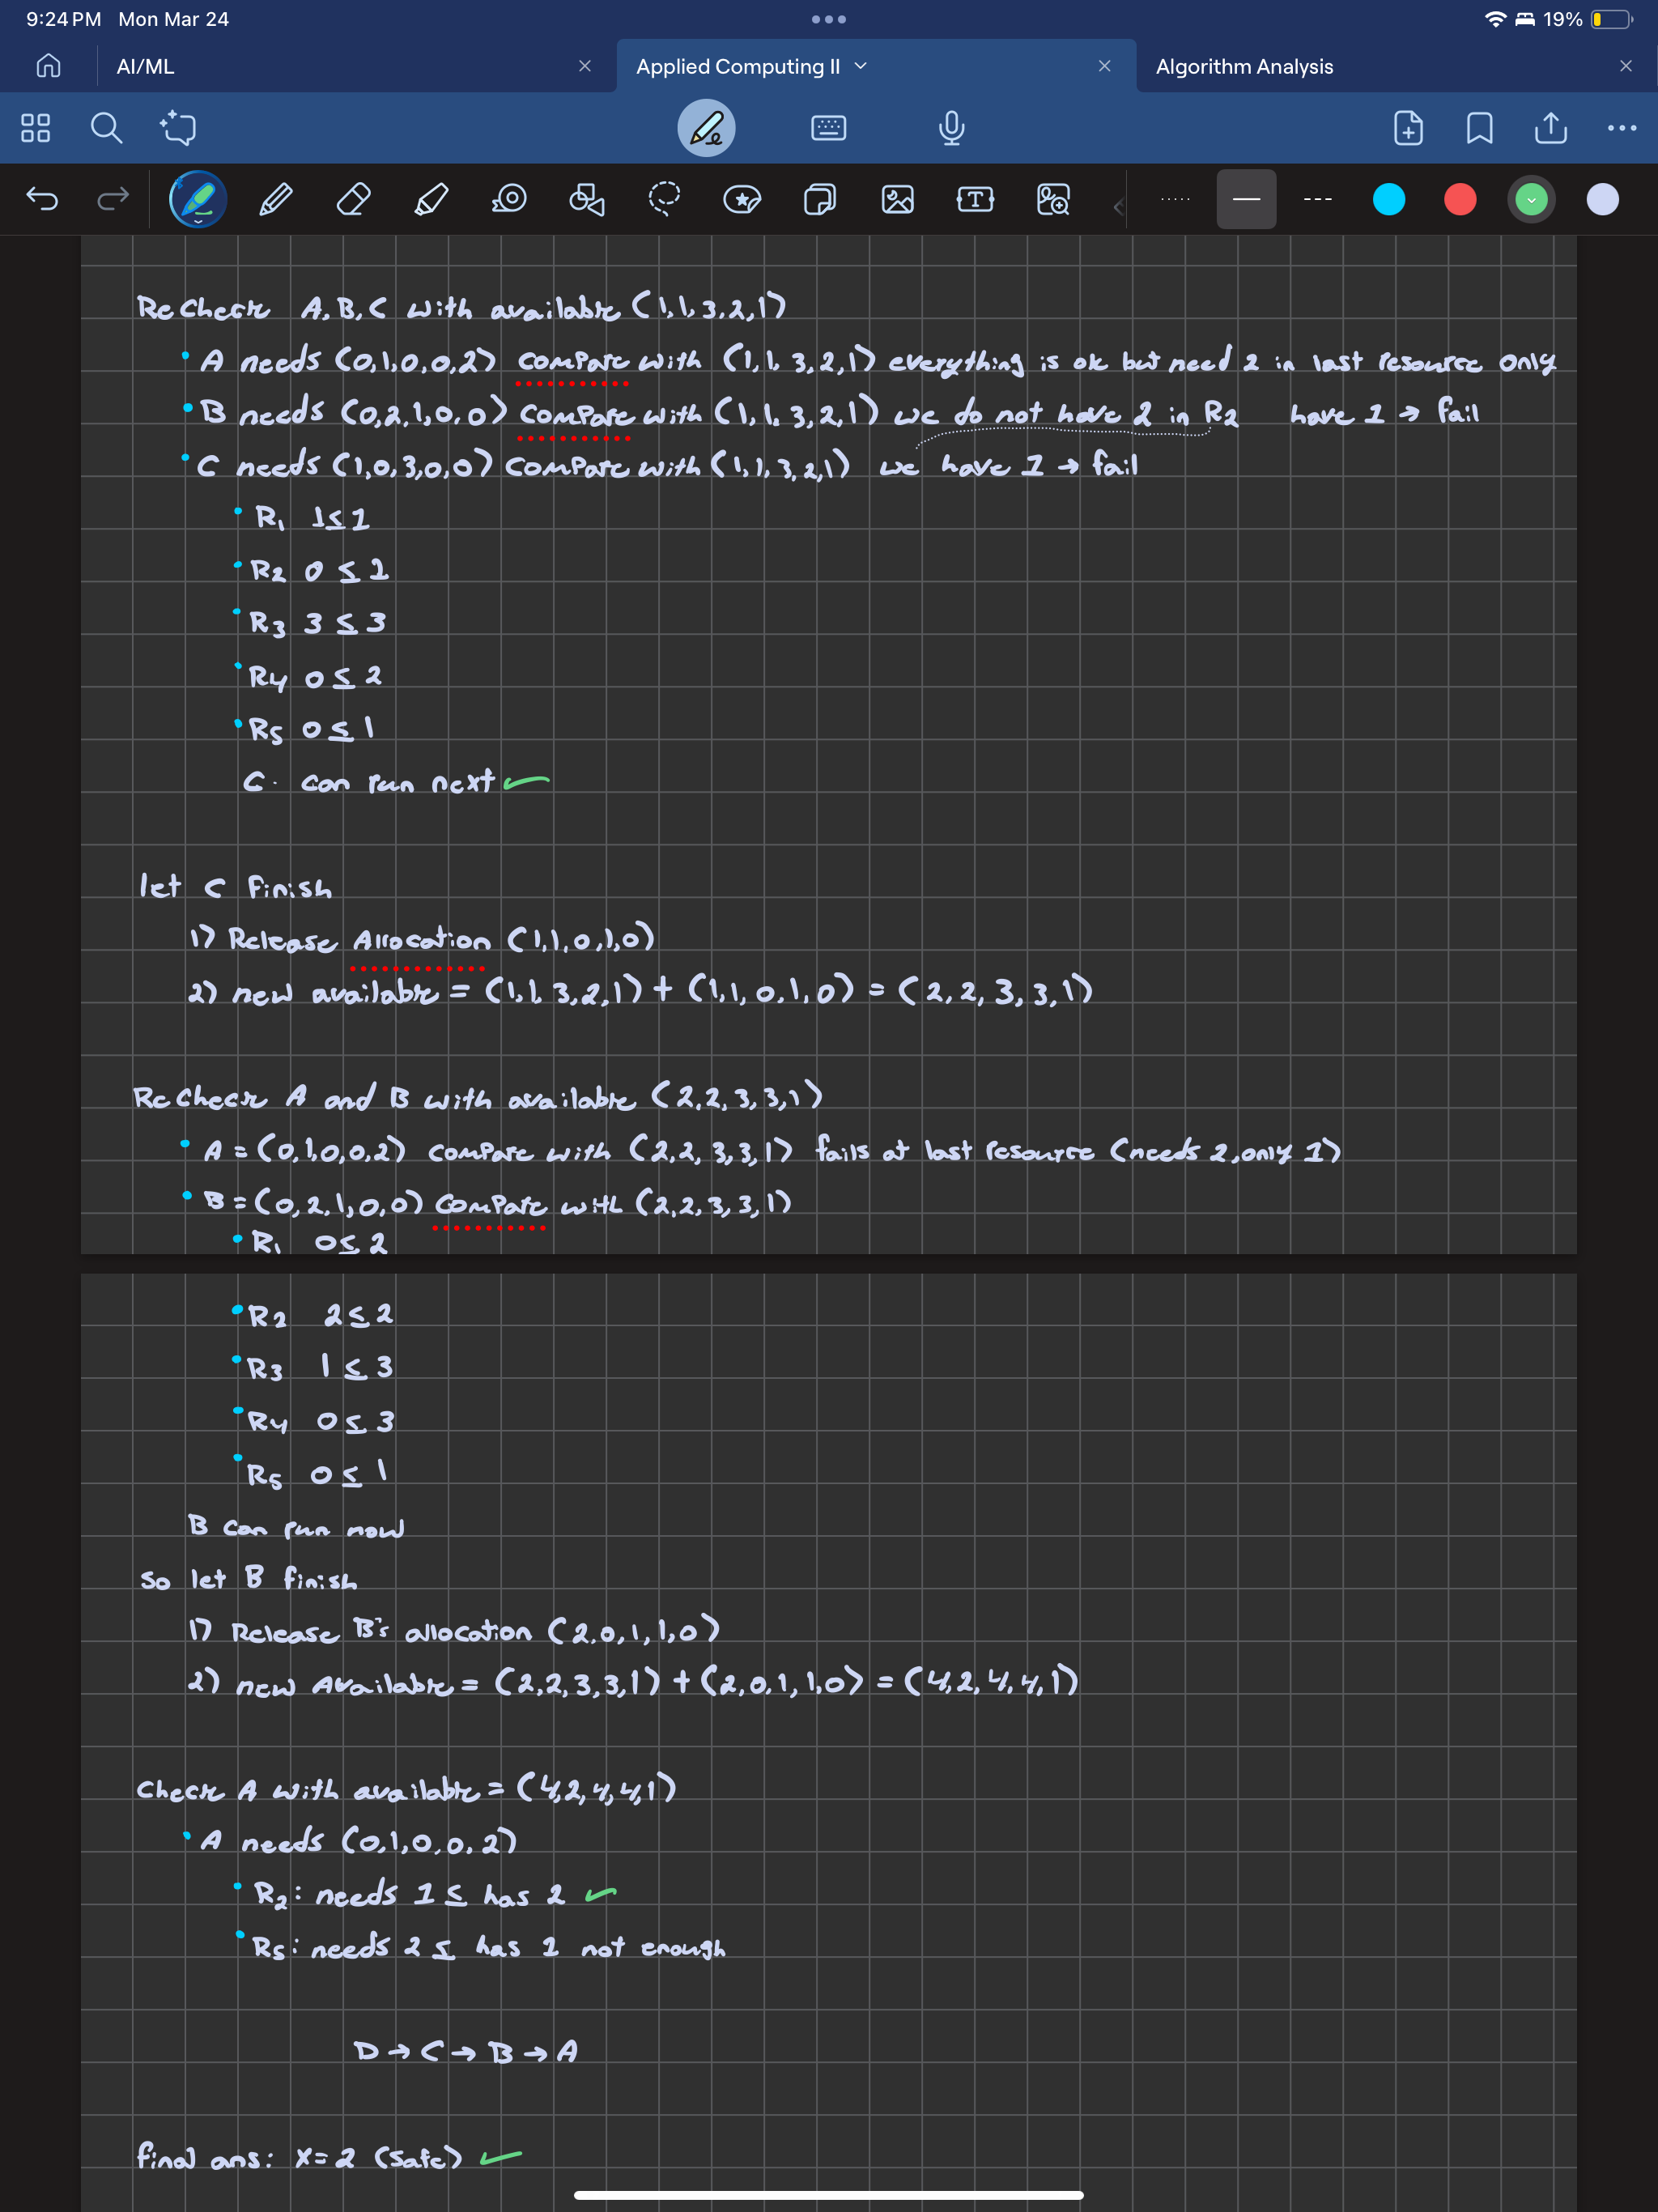 9:24 PM Mon Mar 24
19%
AI/ML
Applied Computing II
Algorithm Analysis
ReCheck A,B,C with available (1,1,3,2,1)
• A needs (0,1,0,0,2) compare with (1,1,3,2,1) everything is ok but need 2 in last resource only
• B needs (0,2,1,0,0) compare with (1,1,3,2,1) we do not have 2 in R2 have 1 → fail
• C needs (1,0,3,0,0) compare with (1,1,3,2,1) we have 1 → fail
• R1 1≤1
• R2 0≤1
• R3 3≤3
• R4 0≤2
• R5 0≤1
C. can run next ✓
let C finish
1) Release Allocation (1,1,0,1,0)
2) new available = (1,1,3,2,1) + (1,1,0,1,0) = (2,2,3,3,1)
ReCheck A and B with available (2,2,3,3,1)
• A = (0,1,0,0,2) compare with (2,2,3,3,1) fails at last resource (needs 2,only 1)
• B = (0,2,1,0,0) compare with (2,2,3,3,1)
• R1 0≤2
• R2 2≤2
• R3 1≤3
• R4 0≤3
• R5 0≤1
B can run now
so let B finish
1) Release B's allocation (2,0,1,1,0)
2) new Available = (2,2,3,3,1) + (2,0,1,1,0) = (4,2,4,4,1)
Check A with available = (4,2,4,4,1)
• A needs (0,1,0,0,2)
• R2: needs 1 ≤ has 2 ✓
• R5: needs 2 ≤ has 1 not enough
D → C → B → A
final ans: X=2 (safe) ✓